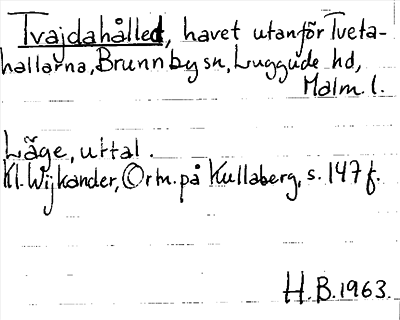 Tvajdahållet, havet utanför Tveta-
hallarna, Brunnby sn, Luggude hd,
Malm. l.
Läge, uttal.
Kl. Wijkander, Ortn. på Kullaberg, s. 147 f.
H.B. 1963.